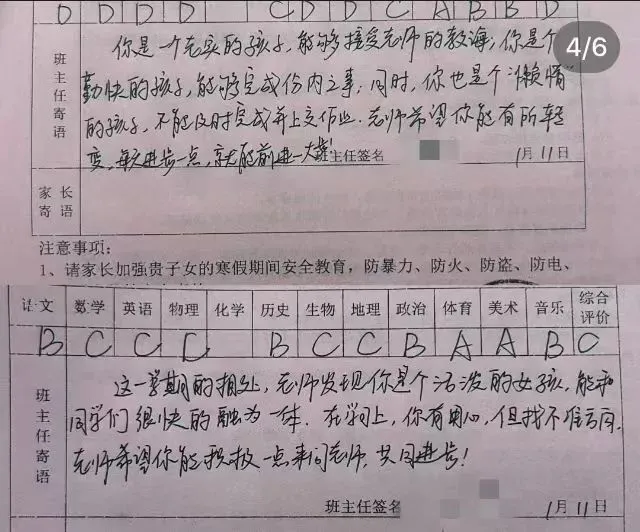 D D D D C D D C A B B D
4/6
班主任寄语
你是一个老实的孩子，能够接受老师的教诲；你是个
勤快的孩子，能够完成份内之事；同时，你也是个“懒惰”
的孩子，不能及时完成并上交作业．老师希望你能有所转
变，每天进步一点，就能前进一大步！
班主任签名
1月11日
家长寄语
注意事项：
1、请家长加强贵子女的寒假期间安全教育，防暴力、防火、防盗、防电、
语文 数学 英语 物理 化学 历史 生物 地理 政治 体育 美术 音乐 综合评价
B C C C B C C B A A B C
班主任寄语
这一学期的相处，老师发现你是个活泼的女孩，能和
同学们很快的融为一体．在学习上，你有用心，但找不准方向．
老师希望你能积极一点来问老师，共同进步！
班主任签名
1月11日